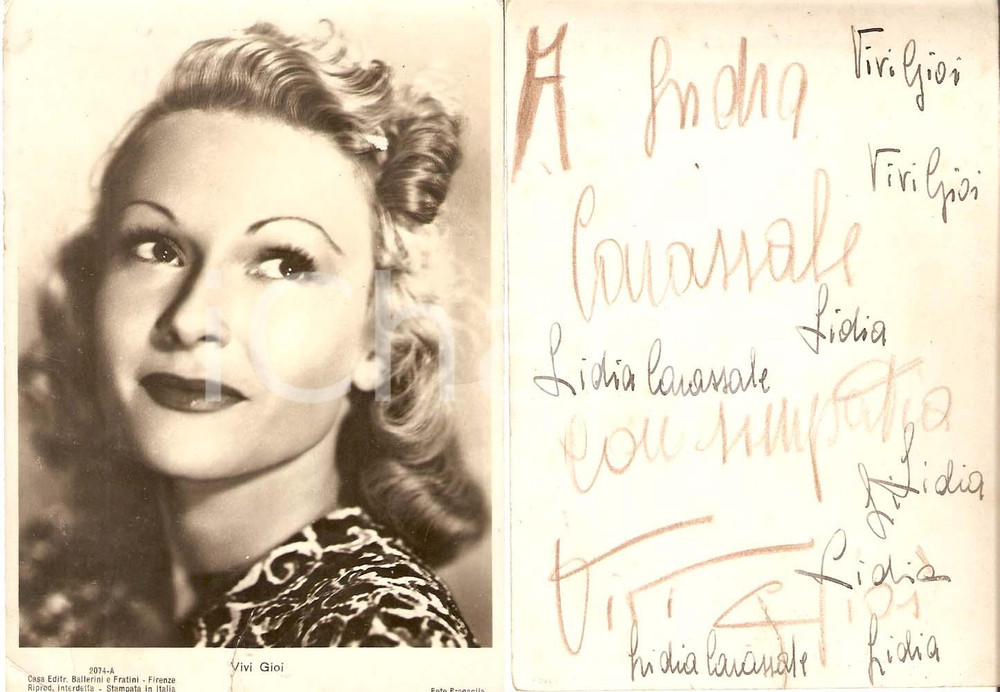 Vivi Gioi
2074-A
Casa Editr. Ballerini e Fratini - Firenze
Riprod. interdetta - Stampata in Italia
Foto Bragaglia
A Lidia
Carassale
con simpatia
Vivi Gioi
Vivi Gioi
Vivi Gioi
Lidia
Lidia Carassale
Li
Lidia
Lidia
Lidia Carassale
Lidia